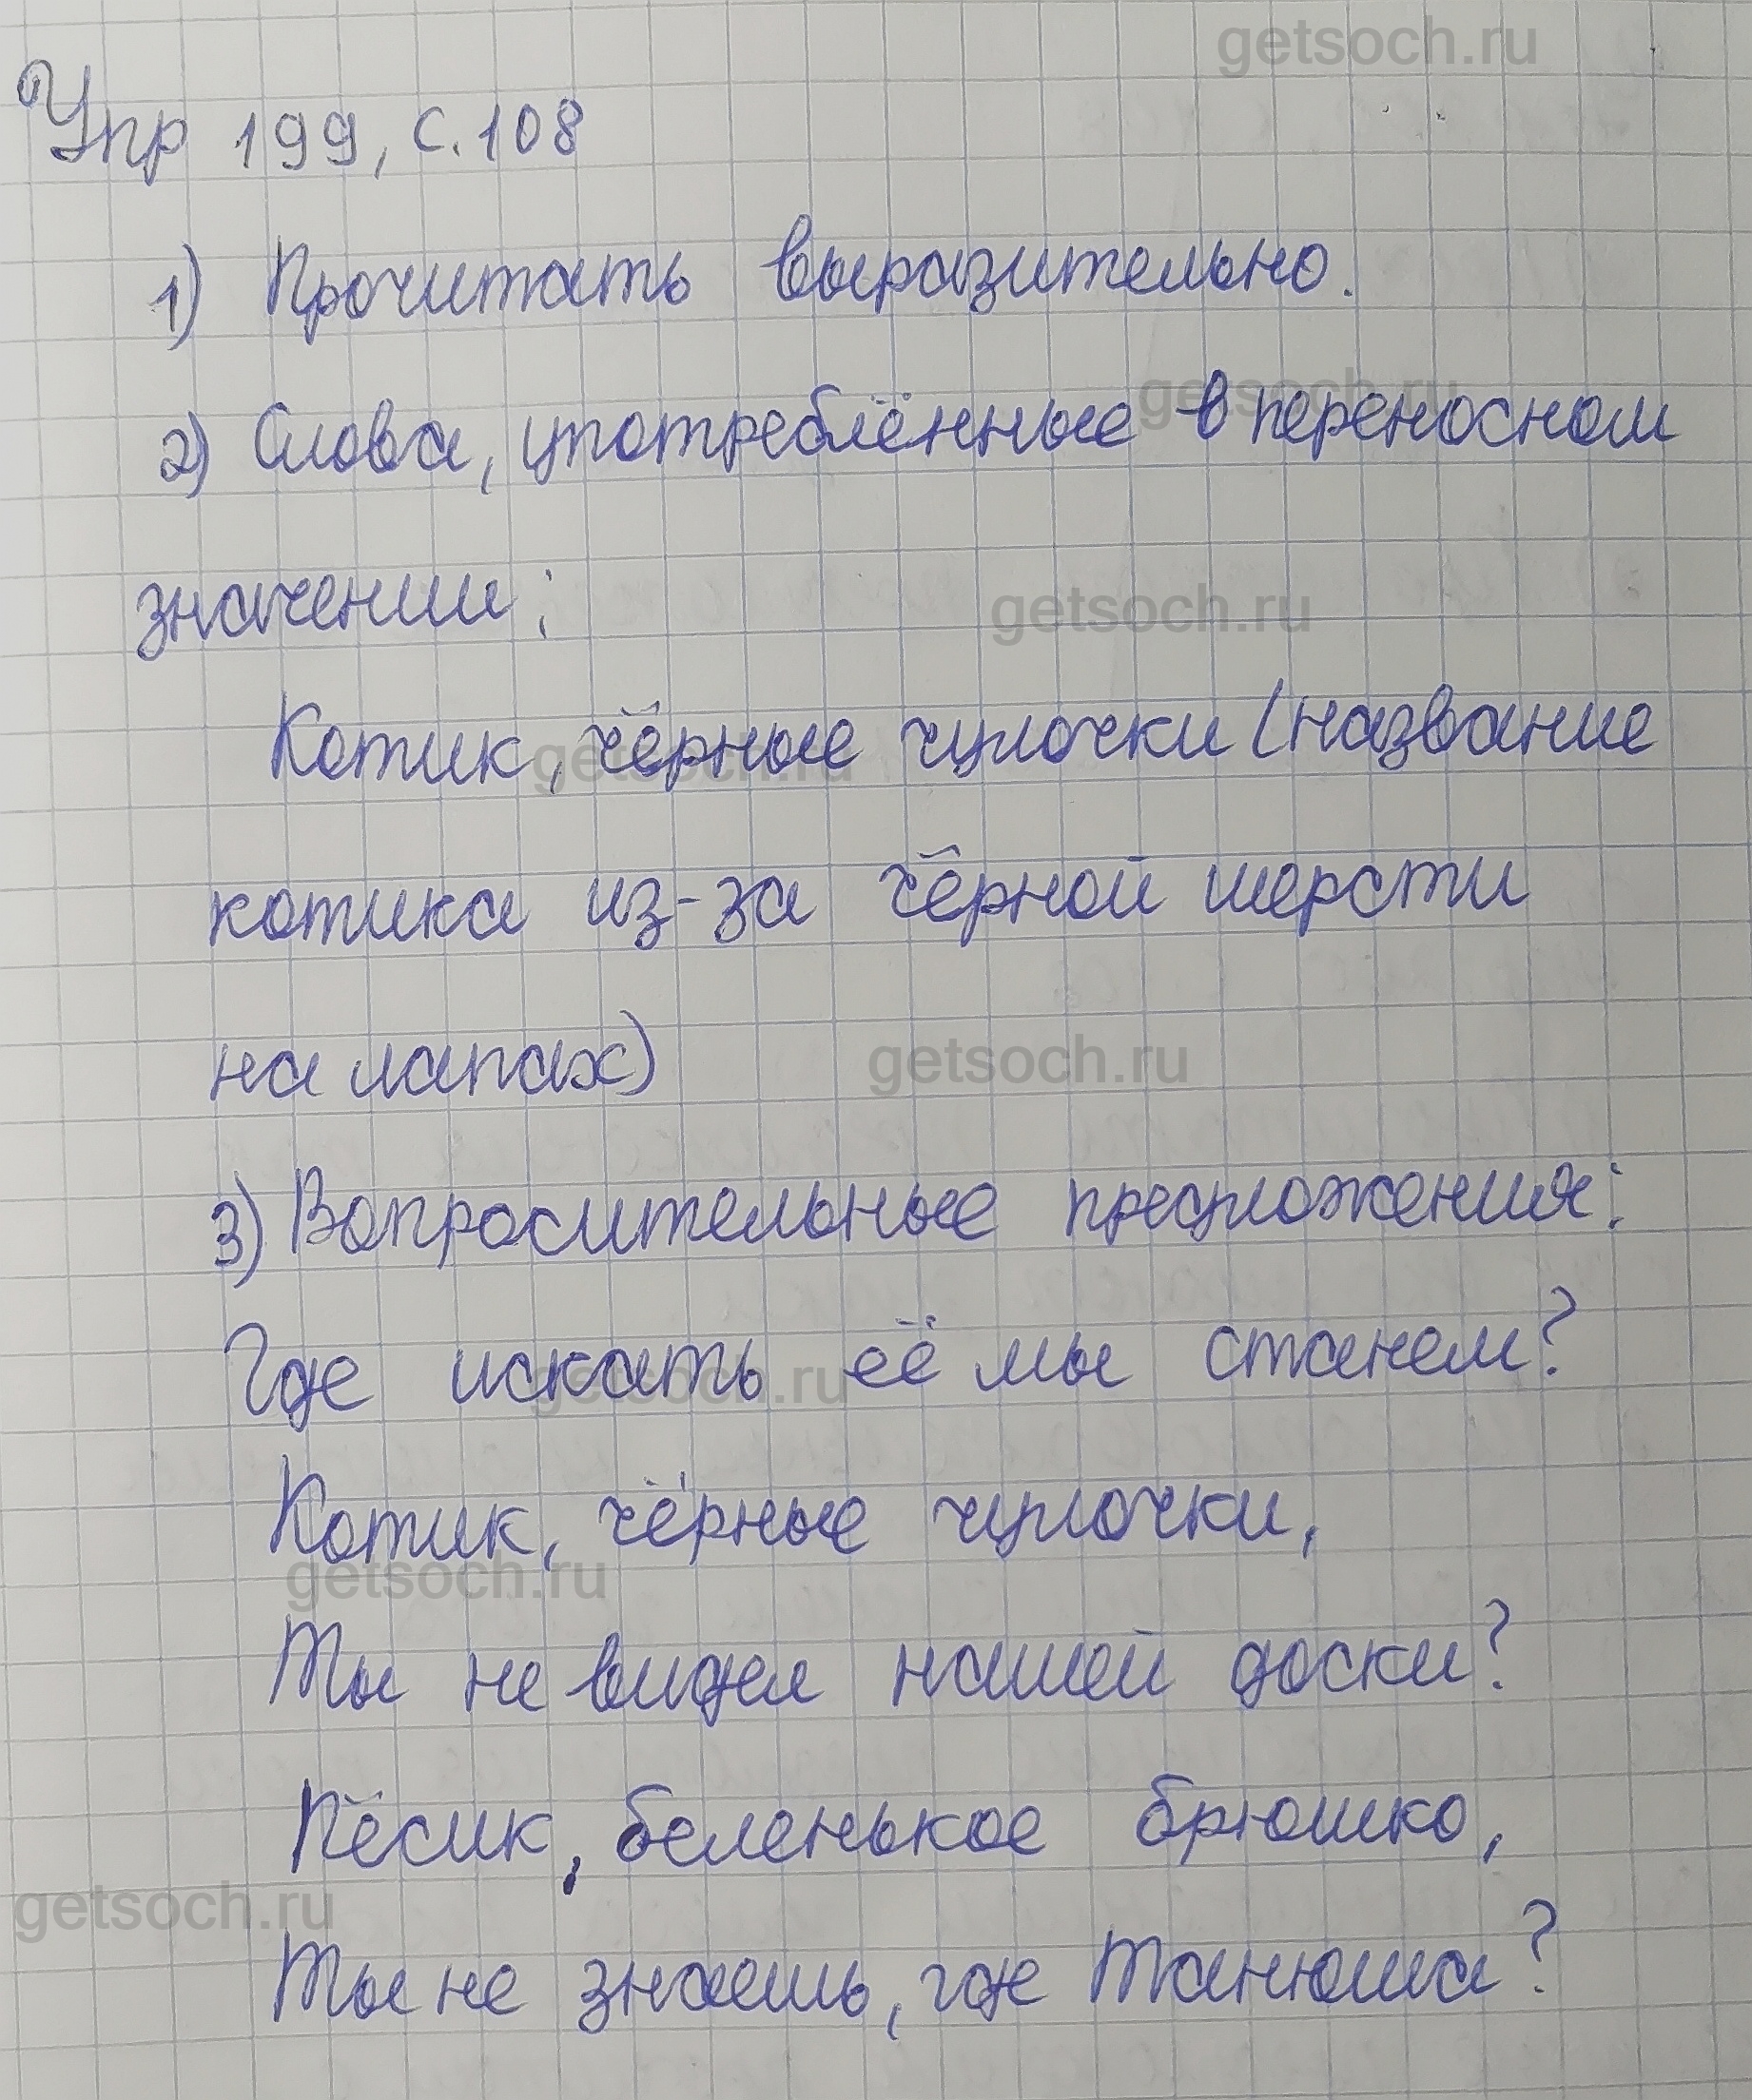 getsoch.ru
Упр 199, с. 108
1) Прочитать выразительно.
getsoch.ru
2) Слова, употреблённые в переносном
значении:
getsoch.ru
Котик, чёрные чулочки (название
getsoch.ru
котика из-за чёрной шерсти
на лапах)
getsoch.ru
3) Вопросительные предложения:
Где искать её мы станем?
getsoch.ru
Котик, чёрные чулочки,
getsoch.ru
Ты не видел нашей доски?
Пёсик, беленькое брюшко,
getsoch.ru
Ты не знаешь, где Танюша?